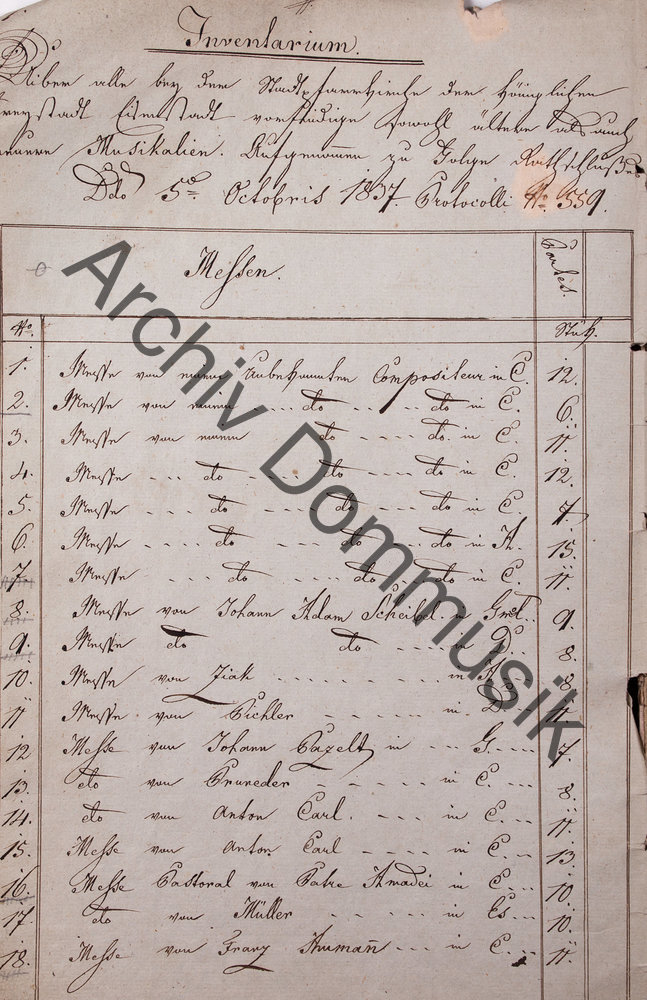 Inventarium.
Über alle bey der Stadtpfarrkirche der Königlichen
Freystadt Eisenstadt vorfindige sowohl ältere als auch
neuere Musikalien. Aufgenommen zu Folge Rathschlußes
Ddo 5ta Octobris 1837. Protocolli No. 559.
Messen. Partes.
No. Stük.
1. Messe von einem Unbekannten Compositeur in C. 12.
2. Messe von einem ... do ... do in C. 6.
3. Messe von einem do - - - do. in C. 11.
4. Messe ... do - ... do - - - - do in C. 12.
5. Messe ... do ... do - - - do in C. 7.
6. Messe .... do - - - do - - - do in A. 15.
7. Messe .... do ..... do ... do in C. 11.
8. Messe von Johann Adam Scheibel. in G 9.
9. Messe do do ... in D.. 8.
10. Messe von Ziak ........ in A.. 8.
11 Messe von Pichler - - - - - - in D... 11.
12 Messe von Johann Pazelt in --- G.... 7.
13. do von Pruneder - - - - - in C. ... 8.
14. do von Anton Carl. ... in C. ... 11.
15. Messe von Anton Carl - ... in C... 13.
16. Messe Pastoral von Patre Amadei in C... 10.
17 do von Müller - - - - - in Es... 10.
18. Messe von Franz Aumañ --- in C... 11.
Archiv Dommusik